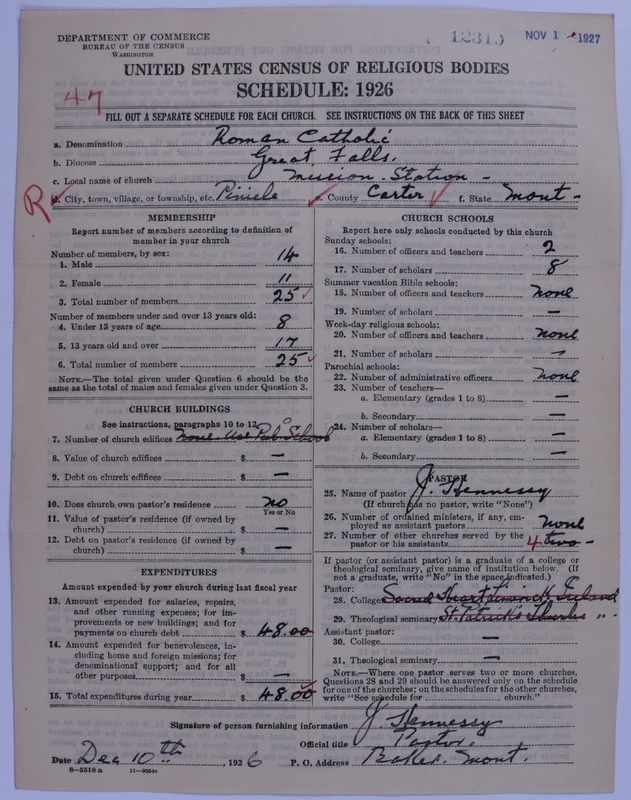 DEPARTMENT OF COMMERCE
BUREAU OF THE CENSUS
WASHINGTON
12315
NOV 1 1927
UNITED STATES CENSUS OF RELIGIOUS BODIES
SCHEDULE: 1926
47
FILL OUT A SEPARATE SCHEDULE FOR EACH CHURCH. SEE INSTRUCTIONS ON THE BACK OF THIS SHEET
a. Denomination Roman Catholic
b. Diocese Great Falls.
c. Local name of church Mission Station -
R d. City, town, village, or township, etc. Piniele e. County Carter f. State Mont -
MEMBERSHIP
Report number of members according to definition of
member in your church
Number of members, by sex:
1. Male 14
2. Female 11
3. Total number of members 25
Number of members under and over 13 years old:
4. Under 13 years of age 8
5. 13 years old and over 17
6. Total number of members 25
NOTE.—The total given under Question 6 should be the
same as the total of males and females given under Question 3.
CHURCH BUILDINGS
See instructions, paragraphs 10 to 12
7. Number of church edifices None. Use Pub School 0
8. Value of church edifices $ —
9. Debt on church edifices $ —
10. Does church own pastor's residence no
Yes or No
11. Value of pastor's residence (if owned by
church) $ —
12. Debt on pastor's residence (if owned by
church) $ —
EXPENDITURES
Amount expended by your church during last fiscal year
13. Amount expended for salaries, repairs,
and other running expenses; for im-
provements or new buildings; and for
payments on church debt $ 48.00
14. Amount expended for benevolences, in-
cluding home and foreign missions; for
denominational support; and for all
other purposes $ —
15. Total expenditures during year $ 48.00
CHURCH SCHOOLS
Report here only schools conducted by this church
Sunday schools:
16. Number of officers and teachers 2
17. Number of scholars 8
Summer vacation Bible schools:
18. Number of officers and teachers none
19. Number of scholars —
Week-day religious schools:
20. Number of officers and teachers none
21. Number of scholars —
Parochial schools:
22. Number of administrative officers none
23. Number of teachers—
a. Elementary (grades 1 to 8) —
b. Secondary —
24. Number of scholars—
a. Elementary (grades 1 to 8) —
b. Secondary —
PASTOR
25. Name of pastor J. Hennessy
(If church has no pastor, write "None")
26. Number of ordained ministers, if any, em-
ployed as assistant pastors none
27. Number of other churches served by the
pastor or his assistants 4 two -
If pastor (or assistant pastor) is a graduate of a college or
theological seminary, give name of institution below. (If
not a graduate, write "No" in the space indicated.)
Pastor:
28. College Sacred Heart Limerick Ireland
29. Theological seminary St. Patrick's Thurles " -
Assistant pastor:
30. College —
31. Theological seminary —
NOTE.—Where one pastor serves two or more churches,
Questions 28 and 29 should be answered only on the schedule
for one of the churches; on the schedules for the other churches,
write "See schedule for church."
Signature of person furnishing information J. Hennessy
Official title Pastor.
Date Dec 10th, 1926 P. O. Address Baker Mont.
8—5518a 11—9084a